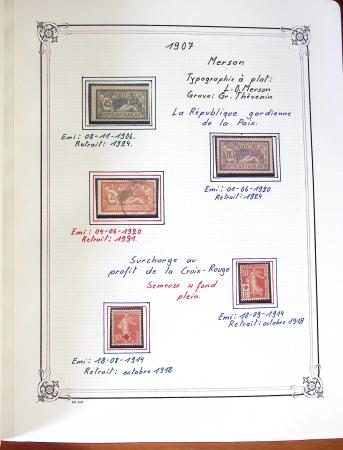 1907
Merson
Typographie à plat:
L.O.Merson
Gravé: Gr. Thévenin
La République gardienne
de la Paix.
Emi: 08-11-1906.
Retrait: 1924.
Emi: 01-06-1920
Retrait: 1924
Emi: 04-06-1920
Retrait: 1931.
Surcharge au
profit de la Croix-Rouge
Semeuse a fond
plein.
Emi: 10-09-1914
Retrait: octobre 1918
Emi: 18-08-1914
Retrait: octobre 1918